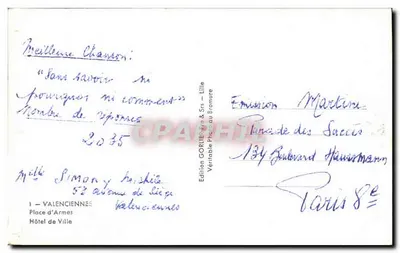 Meilleure Chanson:
"Sans savoir ni
pourquoi ni comment"
Nombre de réponses
2035
Melle SIMONY Michèle
52 avenue de Liège
Valenciennes
1 - VALENCIENNES
Place d'Armes
Hôtel de Ville
Edition GORLIER & Srs - Lille
Véritable Photo au Bromure
Emission Martini
Parade des Succès
134 Boulevard Haussmann
Paris 8e